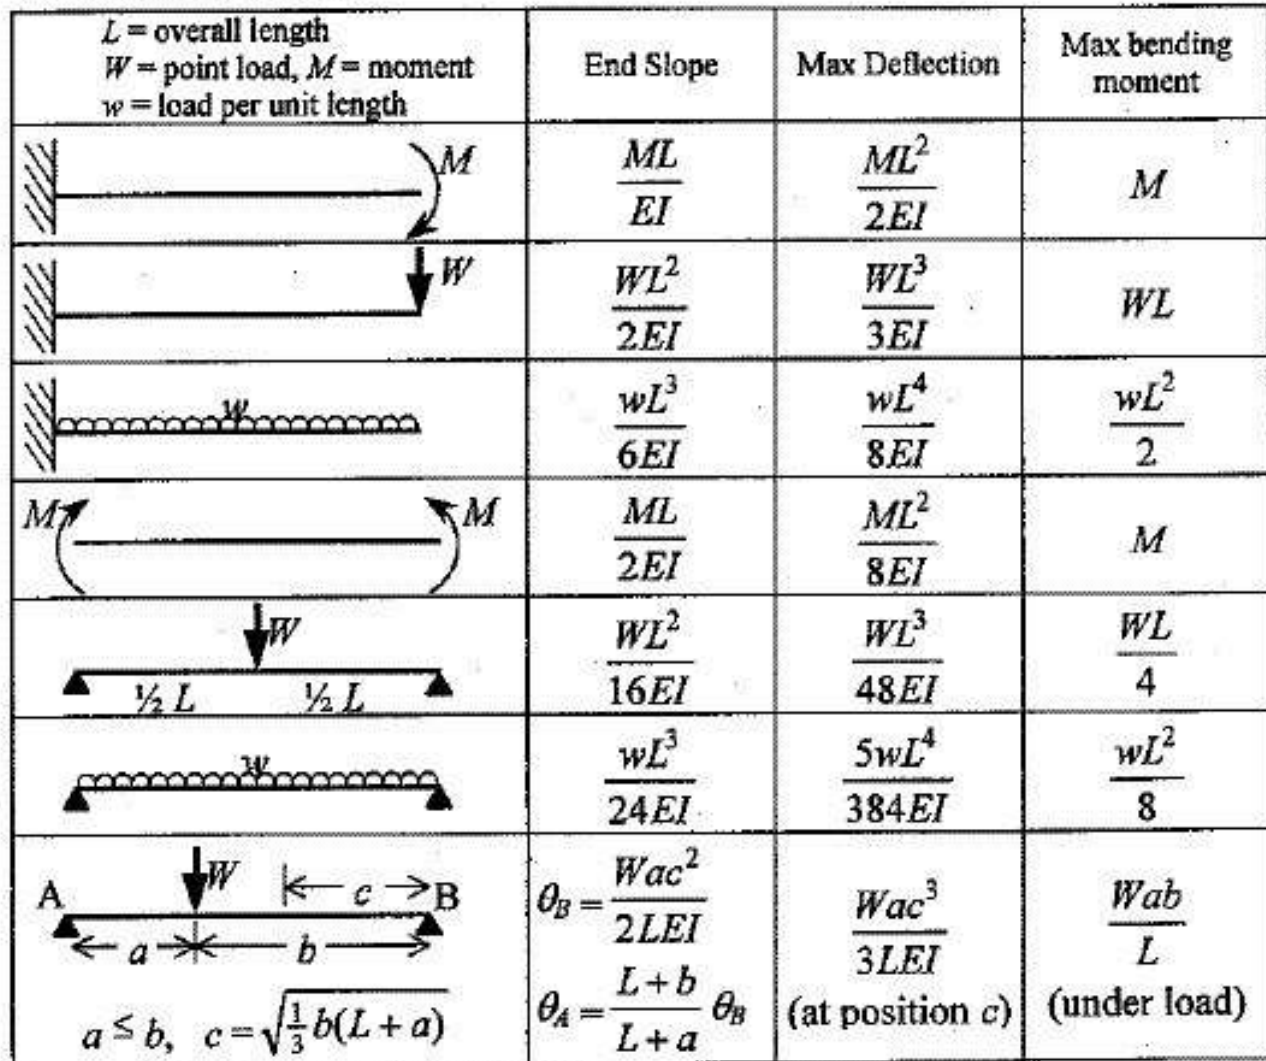 L = overall length
W = point load, M = moment
w = load per unit length
End Slope
Max Deflection
Max bending
moment
M
ML/EI
ML²/2EI
M
W
WL²/2EI
WL³/3EI
WL
w
wL³/6EI
wL⁴/8EI
wL²/2
M
M
ML/2EI
ML²/8EI
M
W
½ L
½ L
WL²/16EI
WL³/48EI
WL/4
w
wL³/24EI
5wL⁴/384EI
wL²/8
W
A
c
B
a
b
a ≤ b, c = √(⅓ b(L + a))
θ_B = Wac²/2LEI
θ_A = (L + b)/(L + a) θ_B
Wac³/3LEI
(at position c)
Wab/L
(under load)